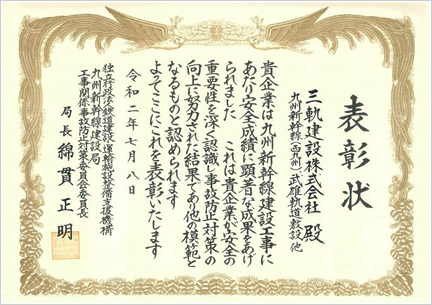 表彰状
三軌建設株式会社 殿
九州新幹線(西九州)、武雄軌道敷設他
貴企業は九州新幹線建設工事に
あたり安全成績に顕著な成果をあげ
られました これは貴企業が安全の
重要性を深く認識し事故防止対策の
向上に努力された結果であり他の模範と
なるものと認められます
よってここにこれを表彰いたします
令和二年七月八日
独立行政法人鉄道建設・運輸施設整備支援機構
九州新幹線建設局
工事関係事故防止対策委員会委員長
局長 綿貫正明